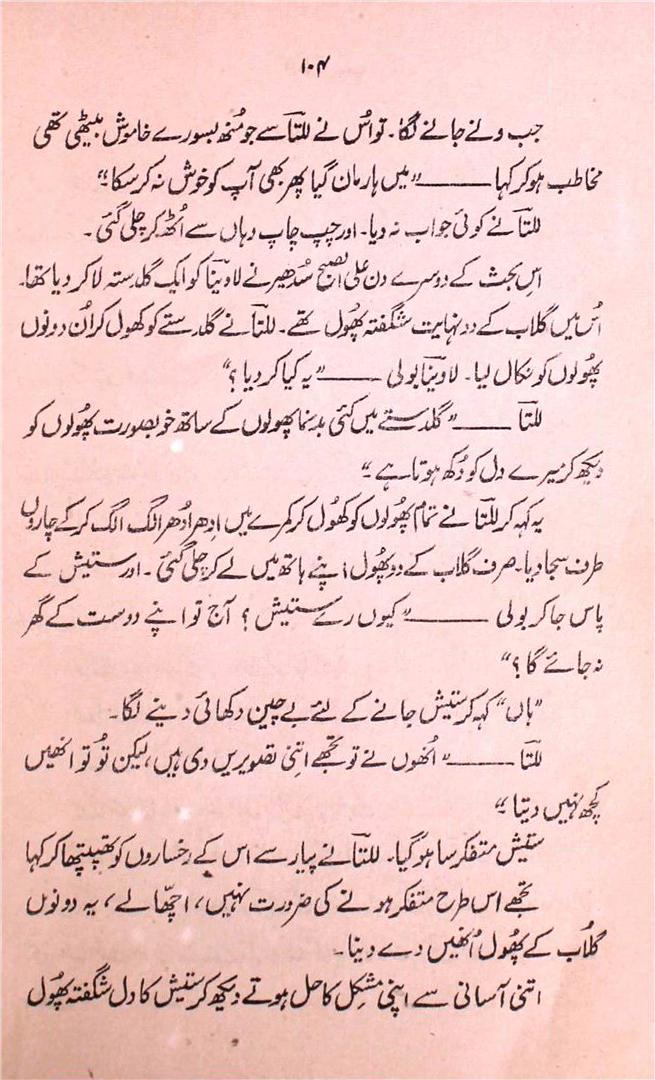 ۱۰۴
جب ونے جانے لگا۔ تو اُس نے للتا سے جو منھ بسورے خاموش بیٹھی تھی
مخاطب ہو کر کہا ــــــــ ”میں ہار مان گیا پھر بھی آپ کو خوش نہ کر سکا۔“
للتا نے کوئی جواب نہ دیا۔ اور چپ چاپ وہاں سے اُٹھ کر چلی گئی۔
اس بحث کے دوسرے دن علی الصبح سُدھیر نے لاوینا کو ایک گلدستہ لا کر دیا تھا۔
اُس میں گلاب کے دو نہایت شگفتہ پھول تھے۔ للتا نے گلدستے کو کھول کر اُن دونوں
پھولوں کو نکال لیا۔ لاوینا بولی ــــــــ ”یہ کیا کر دیا؟“
للتا ــــــــ ”گلدستے میں کئی بدنما پھولوں کے ساتھ خوبصورت پھولوں کو
دیکھ کر میرے دل کو دُکھ ہوتا ہے۔“
یہ کہہ کر للتا نے تمام پھولوں کو کھول کر کمرے میں اِدھر اُدھر الگ الگ کر کے چاروں
طرف سجا دیا۔ صرف گلاب کے دو پھول اپنے ہاتھ میں لے کر چلی گئی۔ اور ستیش کے
پاس جا کر بولی ــــــــ ”کیوں رے ستیش؟ آج تو اپنے دوست کے گھر
نہ جائے گا؟“
”ہاں“ کہہ کر ستیش جانے کے لئے بے چین دکھائی دینے لگا۔
للتا ــــــــ ”اُنھوں نے تو تجھے اتنی تصویریں دی ہیں، لیکن تُو تو انھیں
کچھ نہیں دیتا۔“
ستیش متفکر سا ہو گیا۔ للتا نے پیار سے اس کے رخساروں کو تھپتھپا کر کہا
تجھے اس طرح متفکر ہونے کی ضرورت نہیں، اچھا لے، یہ دونوں
گلاب کے پھول اُنھیں دے دینا۔
اتنی آسانی سے اپنی مشکل کا حل ہوتے دیکھ کر ستیش کا دل شگفتہ پھول